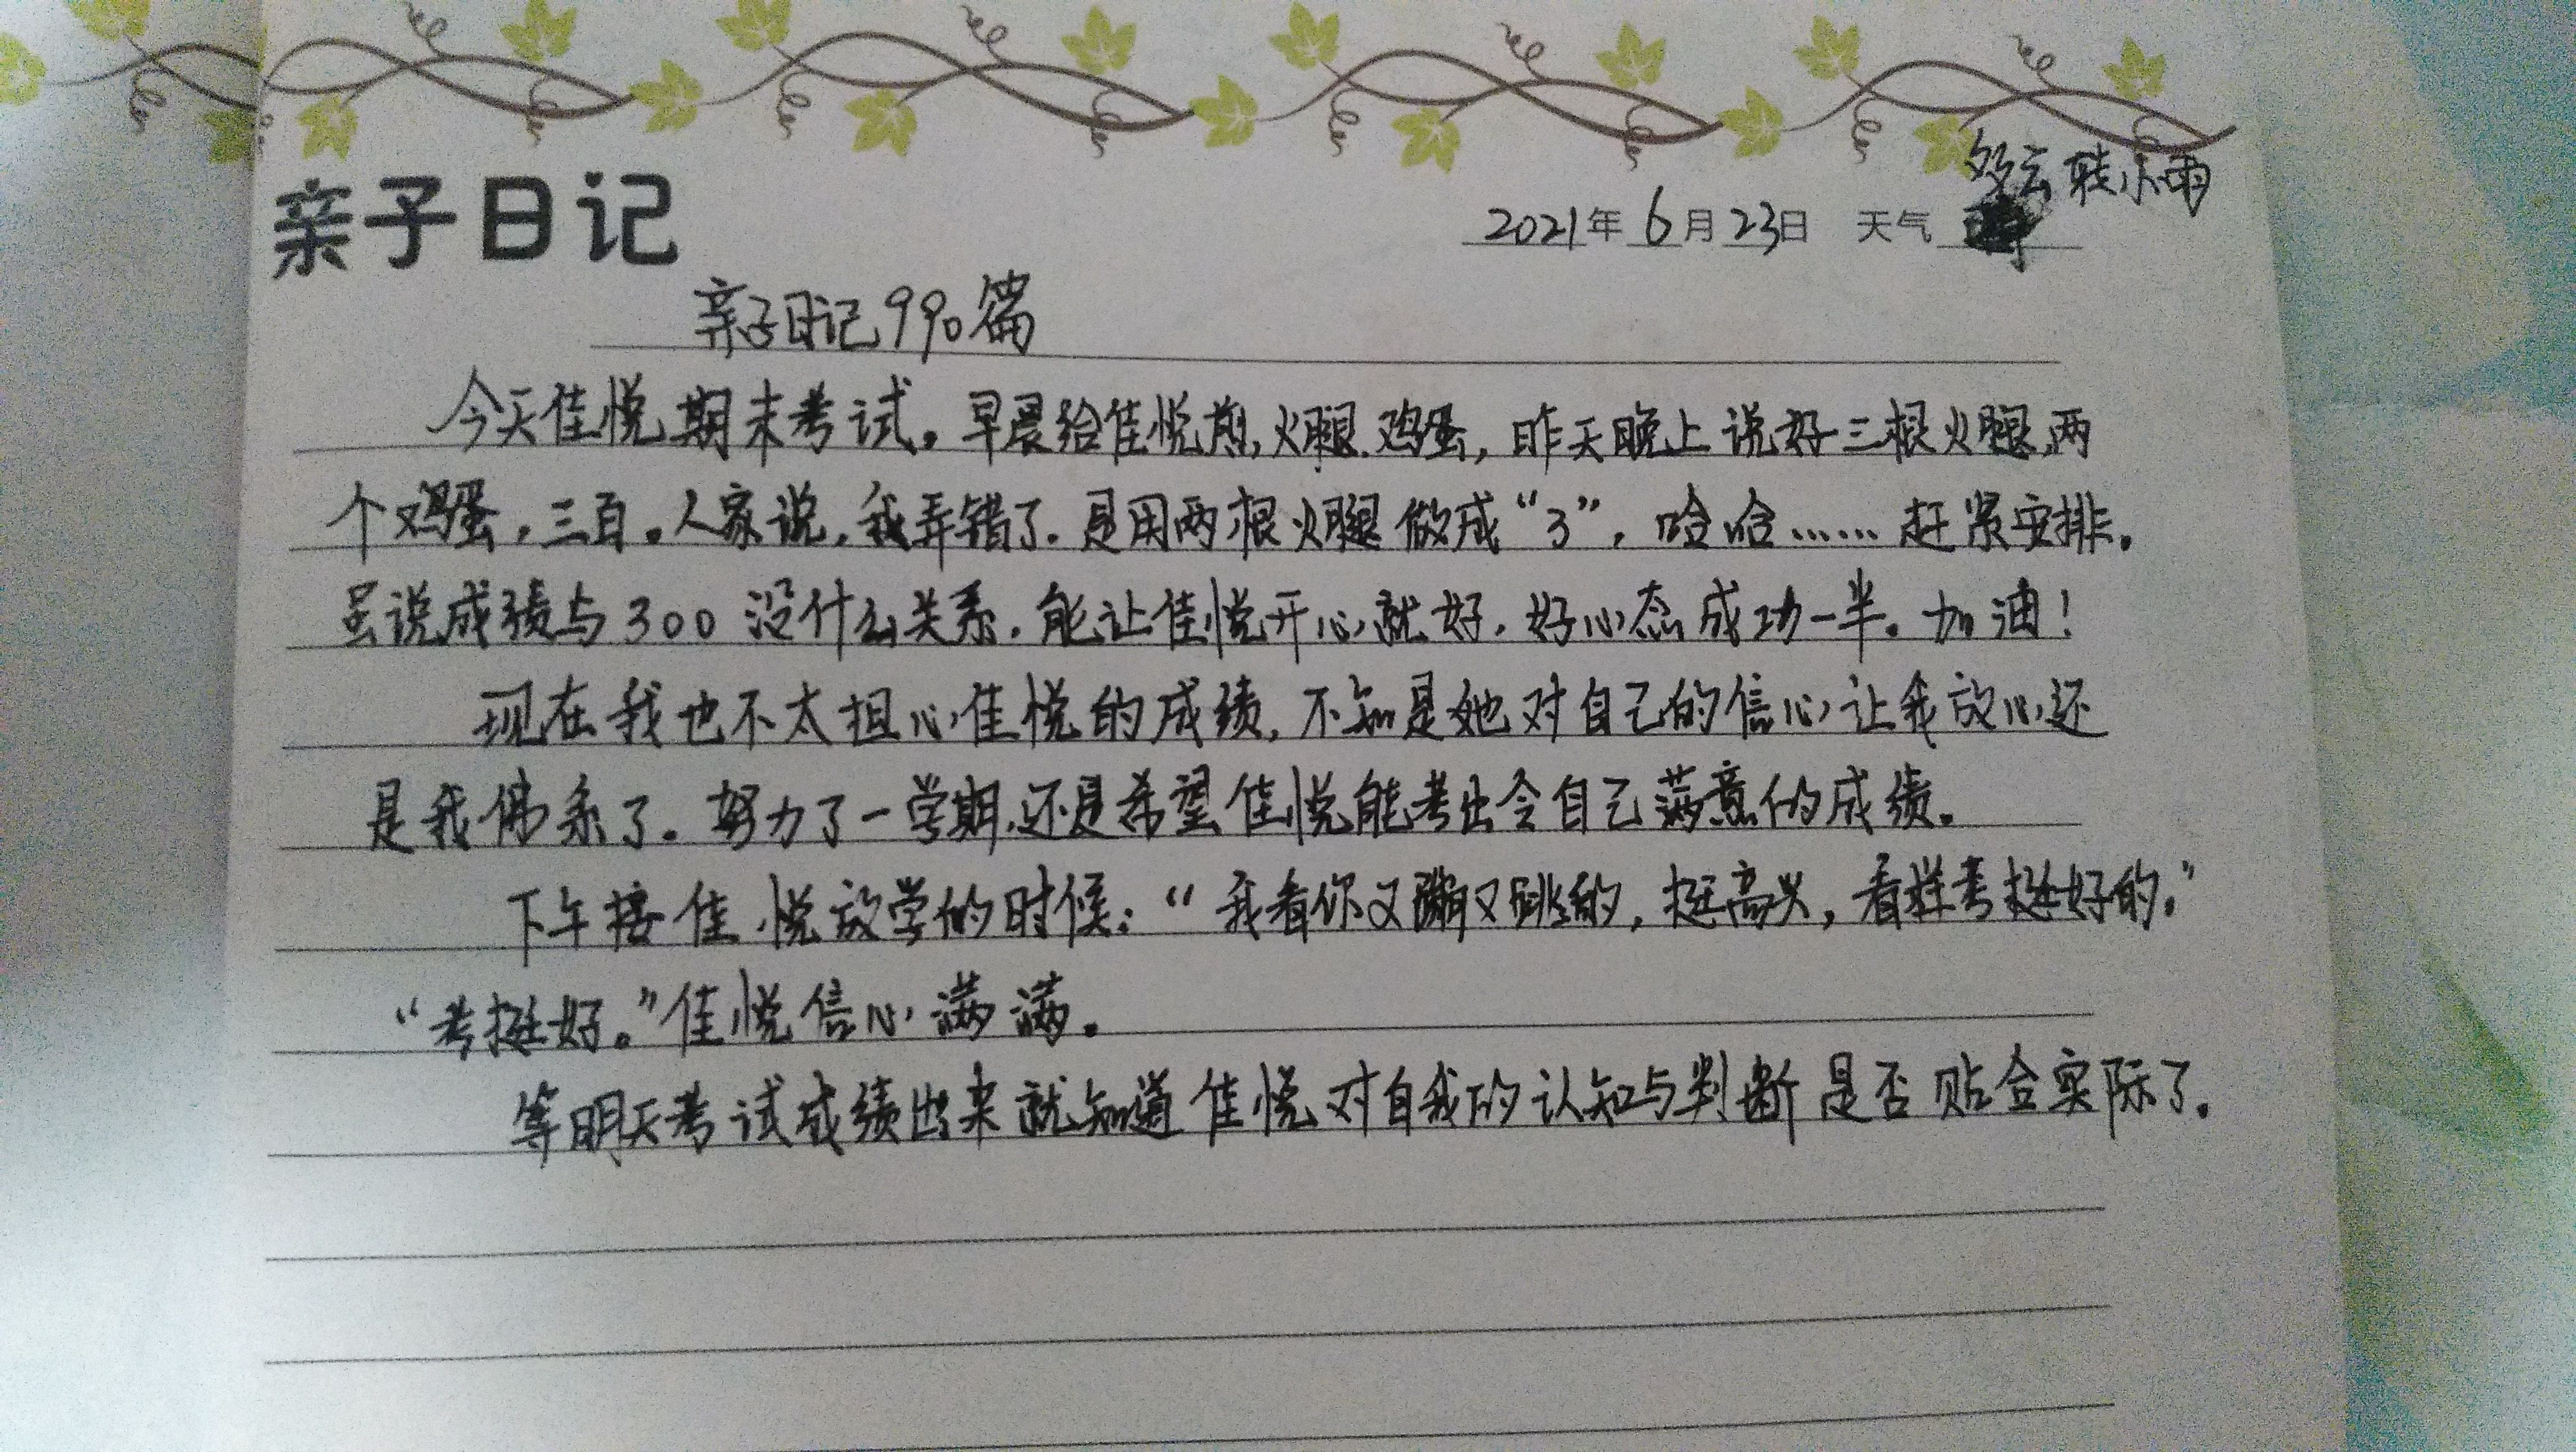 多云转小雨
亲子日记 2021年6月23日 天气
亲子日记990篇
今天佳悦期末考试。早晨给佳悦煎火腿.鸡蛋,昨天晚上说好三根火腿,两
个鸡蛋,三百。人家说,我弄错了.是用两根火腿做成“3”,哈哈……赶紧安排。
虽说成绩与300没什么关系.能让佳悦开心就好.好心态成功一半。加油!
现在我也不太担心佳悦的成绩,不知是她对自己的信心让我放心还
是我佛系了。努力了一学期,还是希望佳悦能考出令自己满意的成绩。
下午接佳悦放学的时候:“我看你又蹦又跳的,挺高兴,看样考挺好的。”
“考挺好。”佳悦信心满满。
等明天考试成绩出来就知道佳悦对自我的认知与判断是否贴合实际了.